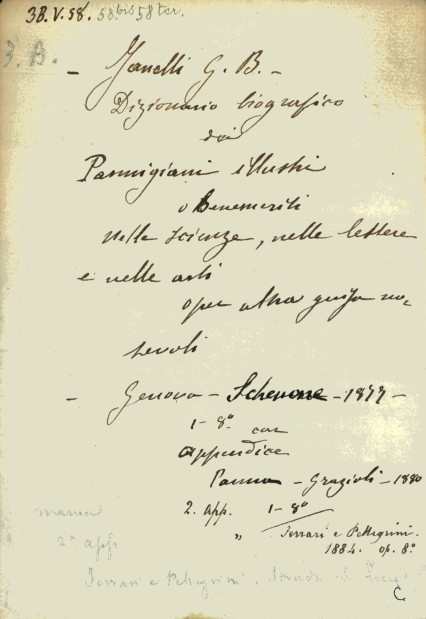 38.V.58. 58 bis 58 ter.
3. B.
- Janelli G. B. -
Dizionario biografico
dei
Parmigiani illustri
o benemeriti
nelle scienze, nelle lettere
e nelle arti
o per altra guisa no-
tevoli
- Genova - Schenone - 1877 -
1 - 8° con
appendice
Parma - Grazioli - 1880
2. app. 1 - 8°
" Ferrari e Pellegrini.
1884. op. 8°.
manca
2ª app.
Ferrari e Pellegrini.
C.